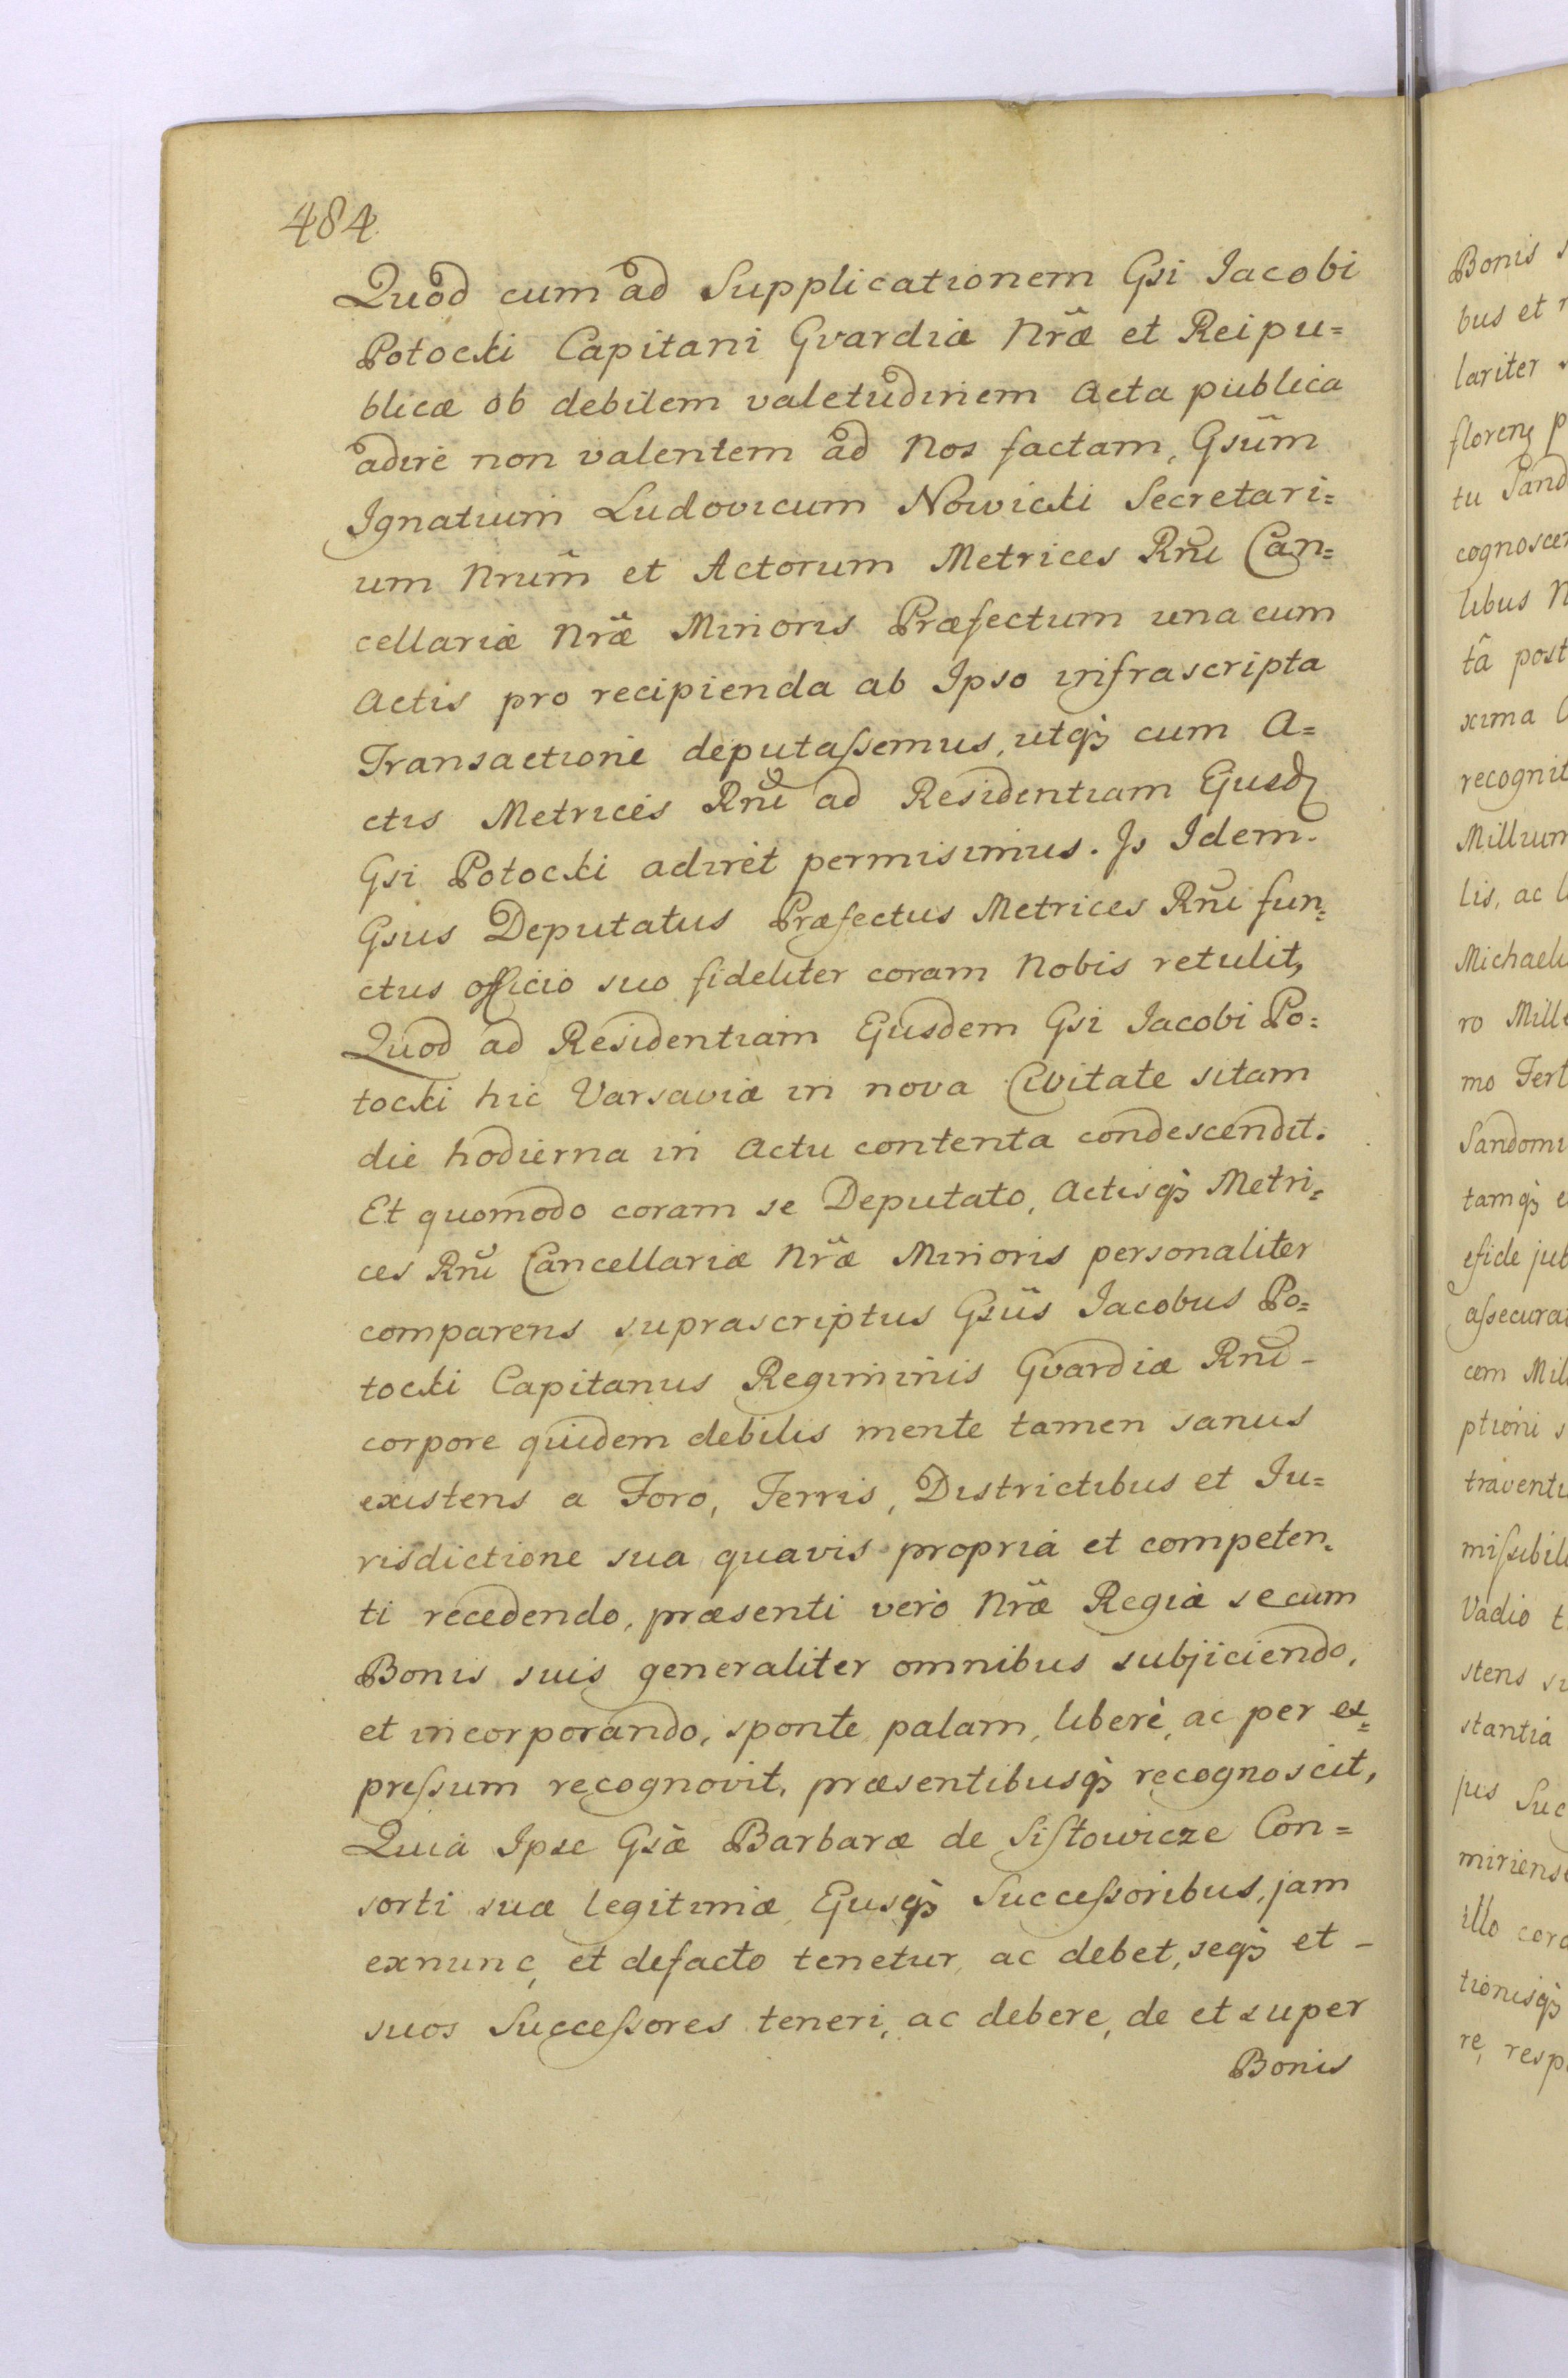 484
Quod cum ad Supplicationem Gsi Iacobi
Potocki Capitani Gvardiæ Nrã̈e et Reipu=
blicæ ob debilem valetudinem Acta publica
adire non valentem ad Nos factam, Gsũm
Ignatium Ludovicum Nowicki Secretari=
um Nrũm et Actorum Metrices Rñi Can=
cellariæ Nræ̃ Minoris Præfectum una cum
Actis pro recipienda ab Ipso infrascripta
Transactione deputaſsemus, utqꝫ cum A=
ctis Metrices Rñi ad Residentiam Ejusd
Gsi Potocki adiret permisimus. Is Idem
Gsus Deputatus Præfectus Metrices Rñi fun=
ctus officio suo fideliter coram Nobis retulit,
Quod ad Residentiam Ejusdem Gsi Iacobi Po=
tocki hic Varsaviæ in nova Civitate sitam
die hodierna in Actu contenta condescendit.
Et quomodo coram se Deputato, Actisqꝫ Metri=
ces Rñi Cancellariæ Nræ̃ Minoris personaliter
comparens suprascriptus Gsũs Iacobus Po=
tocki Capitanus Regiminis Gvardiæ Rñi -
corpore quidem debilis mente tamen sanus
existens a Foro, Terris, Districtibus et Iu=
risdictione sua quavis propria et competen=
ti recedendo, præsenti vero Nræ̃ Regiæ se cum
Bonis suis generaliter omnibus subjiciendo,
et incorporando, sponte palam, liberè, ac per ex=
preſsum recognovit, præsentibusqꝫ recognoscit,
Quia Ipse Gsæ Barbaræ de Siſtowicze Con=
sorti suæ legitimæ Ejusqꝫ Succeſsoribus, jam
exnunc, et defacto tenetur, ac debet, seqꝫ et -
suos Succeſsores teneri, ac debere, de et super
Bonis
Bonis
bus et
lariter
floren
tu Sand
cognoscen
libus N
tâ post
xima
recognit
Millium
lis, ac
Michael
ro Mill
mo Tert
Sandomi
tamqꝫ
efide jub
aſsecura
cem Mil
ptioni
traventi
miſsibil
Vadio
stens
stantia
jus Suc
miriens
illo cor
tionisqꝫ
re, resp